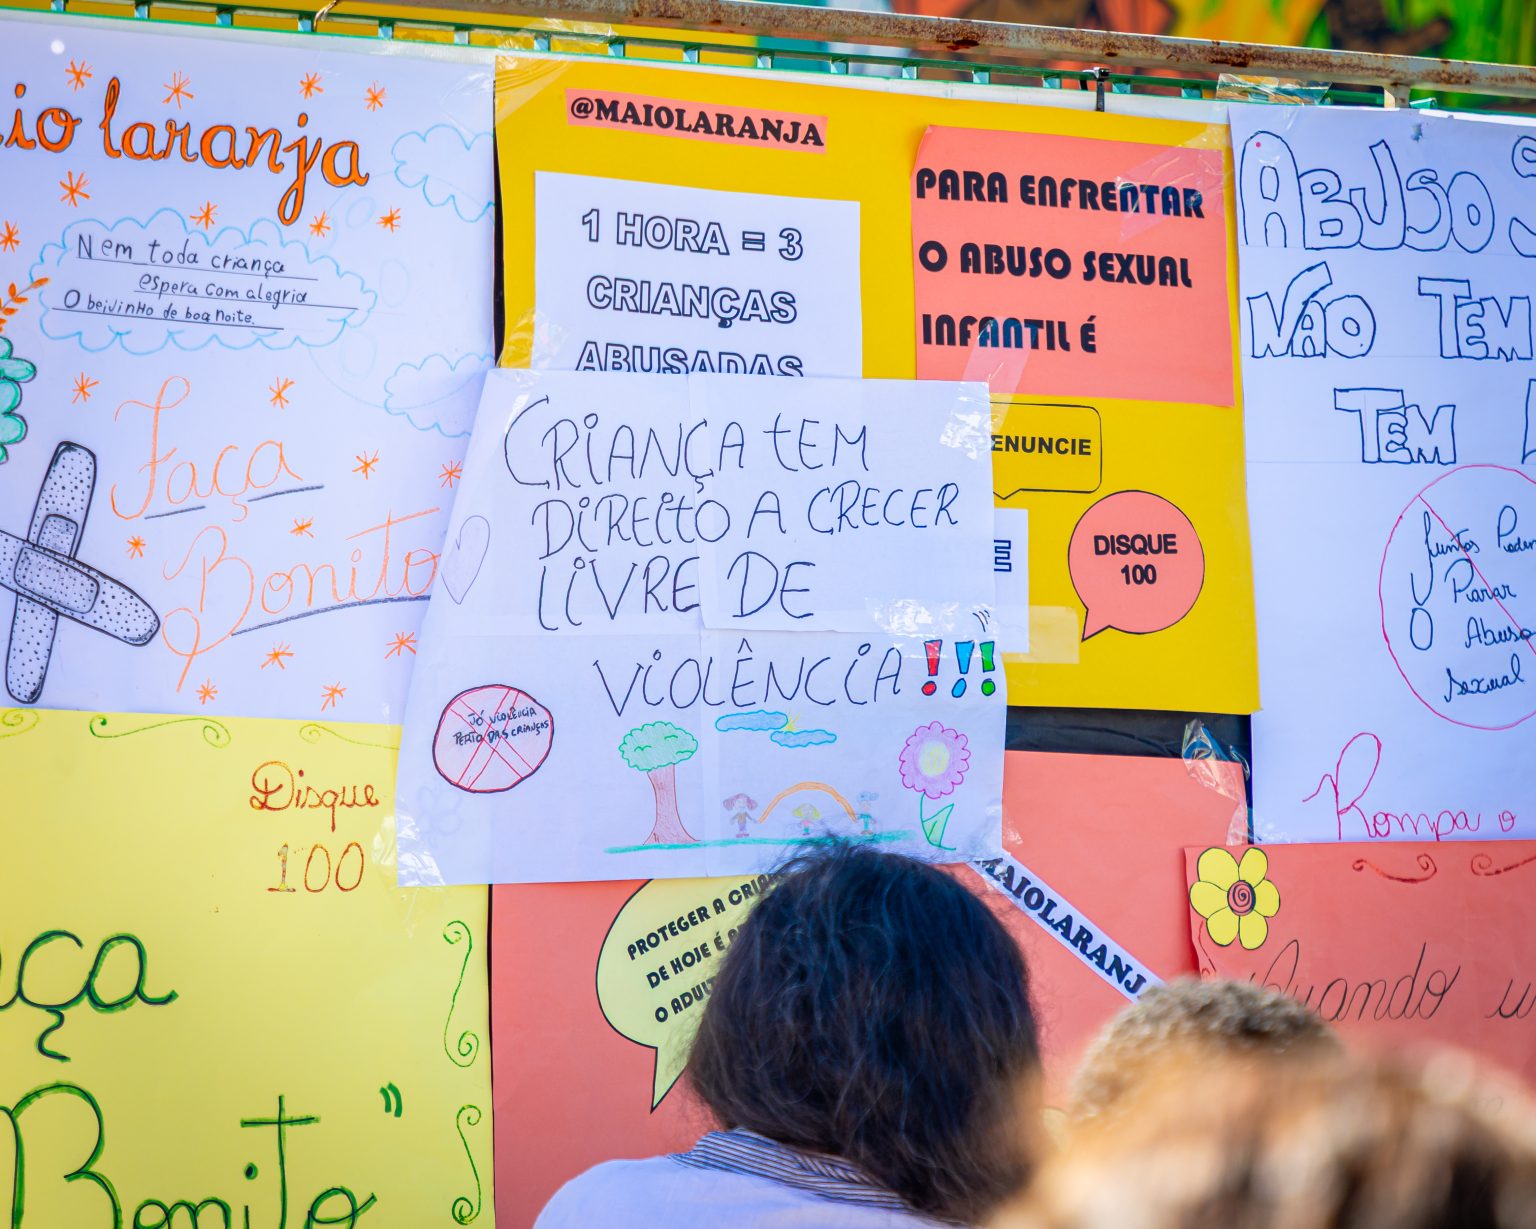 laranja
Nem toda criança
espera com alegria
O beijinho de boa noite.
Faça
Bonito
@MAIOLARANJA
1 HORA = 3
CRIANÇAS
ABUSADAS
PARA ENFRENTAR
O ABUSO SEXUAL
INFANTIL É
ENUNCIE
DISQUE
100
CRIANÇA TEM
DIREITO A CRECER
LIVRE DE
VIOLÊNCIA!!!
VIOLÊNCIA
DAS CRIANÇAS
ABUSO
NÃO TEM
TEM
Juntos Podem
Parar
O Abuso
Sexual
Rompa o
Disque
100
aça
Bonito"
PROTEGER A
DE HOJE É
O
MAIOLARANJ
Quando u